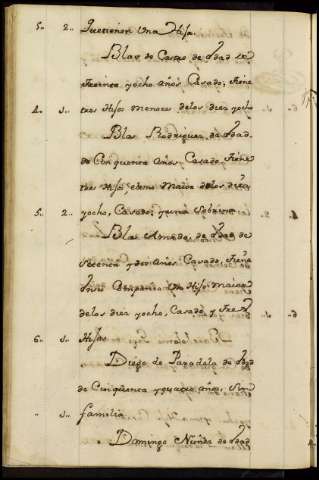 5.. 2.. una Hija.
Blas de Castro de hedad de
treinta y ocho años Casado, tiene
2.. 3.. tres Hijos menores delos diez y ocho
Blas Rodriguez de hedad
de Cinquenta años Casado, tiene
tres Hijos el uno Maior delos diez
5.. 2.. y ocho, Casado; y una Sobrina
Blas de hedad de
Setenta y dos años Casado, tiene
un Hijo Maior
delos diez y ocho, Casado y tres
6.. 3.. Hijas
Diego de Paradela de hedad
de Cinquenta y quatro años, Sin
" 1.. familia
Domingo Nuñez de hedad